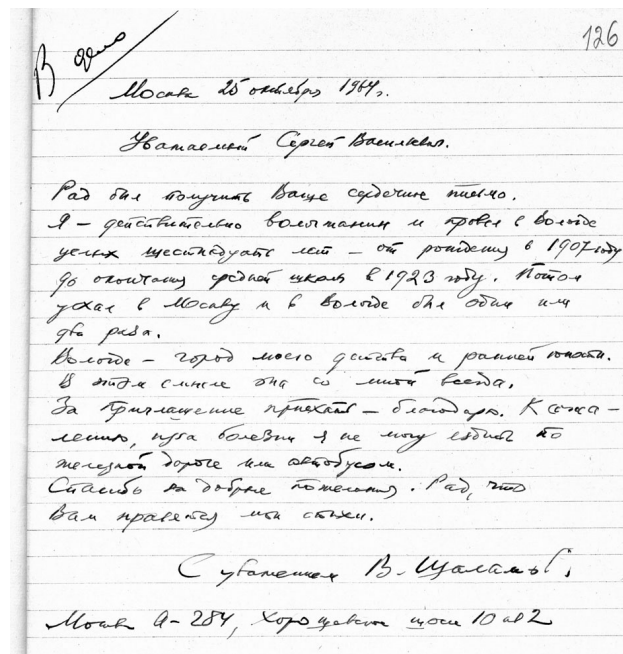 126
В дело
Москва 25 октября 1964 г.
Уважаемый Сергей Васильевич.
Рад был получить Ваше сердечное письмо.
Я – действительно вологжанин и провел в Вологде
целых шестнадцать лет – от рождения в 1907 году
до окончания средней школы в 1923 году. Потом
уехал в Москву и в Вологде был один или
два раза.
Вологда – город моего детства и ранней юности.
В этом смысле она со мной всегда.
За приглашение приехать – благодарю. К сожа-
лению, из-за болезни я не могу ездить по
железной дороге или автобусом.
Спасибо за добрые пожелания. Рад, что
Вам нравятся мои стихи.
С уважением В. Шаламов.
Москва А-284, Хорошевское шоссе 10 кв 2